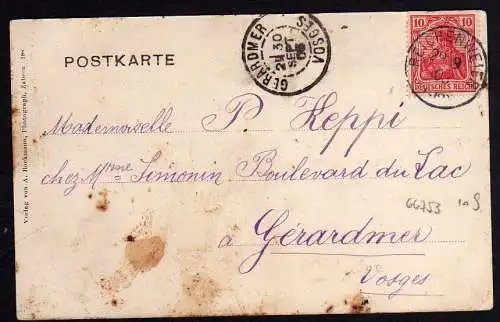 POSTKARTE
GERARDMER
VOSGES
30
SEPT
10
10
DEUTSCHES REICH
Mademoiselle P Heppi
chez Mme Simonin Boulevard du Lac
à Gérardmer
Vosges
66753
Verlag von A. Bockmann, Photograph, Zabern